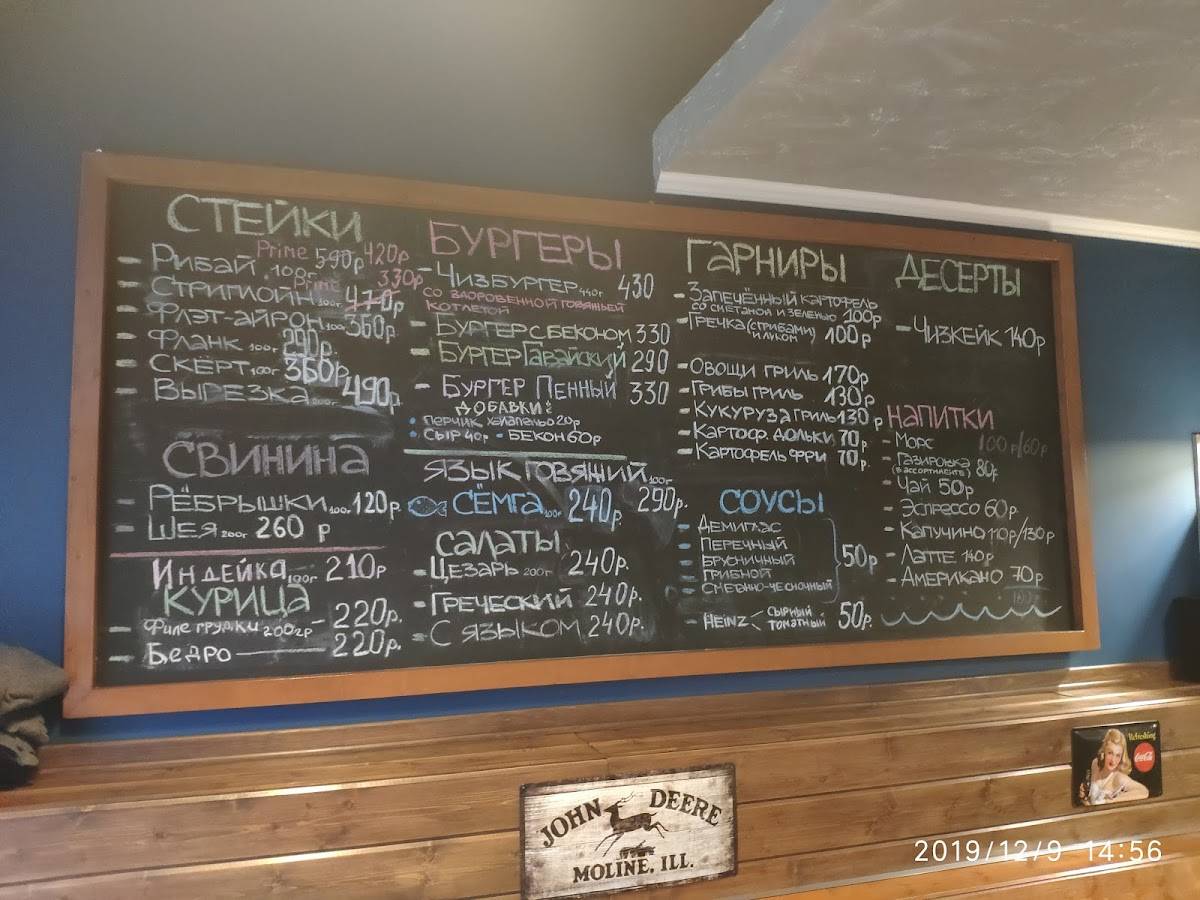 СТЕЙКИ
- РИБАЙ 100г Prime 590р 420р
- СТРИПЛОЙН 100г Prime 470р 330р
- ФЛЭТ-АЙРОН 100г 360р
- ФЛАНК 100г 290р.
- СКЁРТ 100г 360р.
- ВЫРЕЗКА 200г 490р.
СВИНИНА
- РЁБРЫШКИ 100г. 120р.
- ШЕЯ 200г 260 р
ИНДЕЙКА 190г 210р
КУРИЦА
- ФИЛЕ ГРУДКИ 200гр - 220р.
- БЕДРО 220р.
БУРГЕРЫ
- ЧИЗБУРГЕР 440г 430
СО ЗДОРОВЕННОЙ ГОВЯЖЬЕЙ
КОТЛЕТОЙ
- БУРГЕР С БЕКОНОМ 330
- БУРГЕР ГАВАЙСКИЙ 290
- БУРГЕР ПЕННЫЙ 330
ДОБАВКИ:
• ПЕРЧИК ХАЛАПЕНЬО 20р
• СЫР 40р • БЕКОН 60р
ЯЗЫК ГОВЯЖИЙ 100г. 290р.
СЁМГА 100г 240р.
САЛАТЫ
- ЦЕЗАРЬ 200г 240р.
- ГРЕЧЕСКИЙ 240р.
- С ЯЗЫКОМ 240р.
ГАРНИРЫ
- ЗАПЕЧЁННЫЙ КАРТОФЕЛЬ
СО СМЕТАНОЙ И ЗЕЛЕНЬЮ 100р
- ГРЕЧКА (С ГРИБАМИ И ЛУКОМ) 100р
- ОВОЩИ ГРИЛЬ 170р
- ГРИБЫ ГРИЛЬ 130р.
- КУКУРУЗА ГРИЛЬ 130р
- КАРТОФ. ДОЛЬКИ 70р.
- КАРТОФЕЛЬ ФРИ 70р.
СОУСЫ
- ДЕМИГЛАС
- ПЕРЕЧНЫЙ
- БРУСНИЧНЫЙ 50р
- ГРИБНОЙ
- СМЕТАННО-ЧЕСНОЧНЫЙ
- HEINZ < СЫРНЫЙ ТОМАТНЫЙ 50р.
ДЕСЕРТЫ
- ЧИЗКЕЙК 140р
НАПИТКИ
- МОРС 100р/60р
- ГАЗИРОВКА (В АССОРТИМЕНТЕ) 80р
- ЧАЙ 50р
- ЭСПРЕССО 60р.
- КАПУЧИНО 110р/130р
- ЛАТТЕ 140р
- АМЕРИКАНО 70р
JOHN DEERE
MOLINE, ILL.
Refreshing
Coca-Cola
2019/12/9 14:56